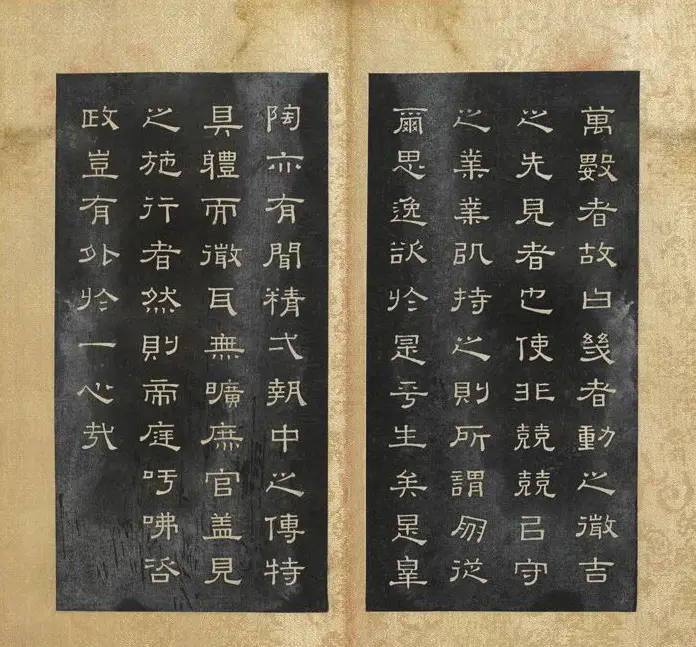 萬數者故曰幾者動之微吉
之先見者也使非兢兢㠯守
之業業㠯持之則所謂朋從
爾思逸欲於是乎生矣是皐
陶亦有聞精弌執中之傳特
具體而微耳無曠庶官盖見
之施行者然則帝庭吁咈咨
政豈有外於一心哉